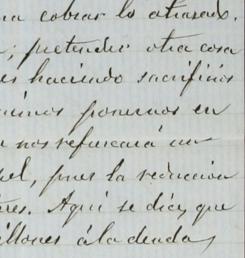 na cobrar lo atrasado.
; pretender otra cosa
es haciendo sacrificios
ponernos en
nos refuscará un
el, pues la reduccion
res. Aqui se dice, que
illones á la deuda,